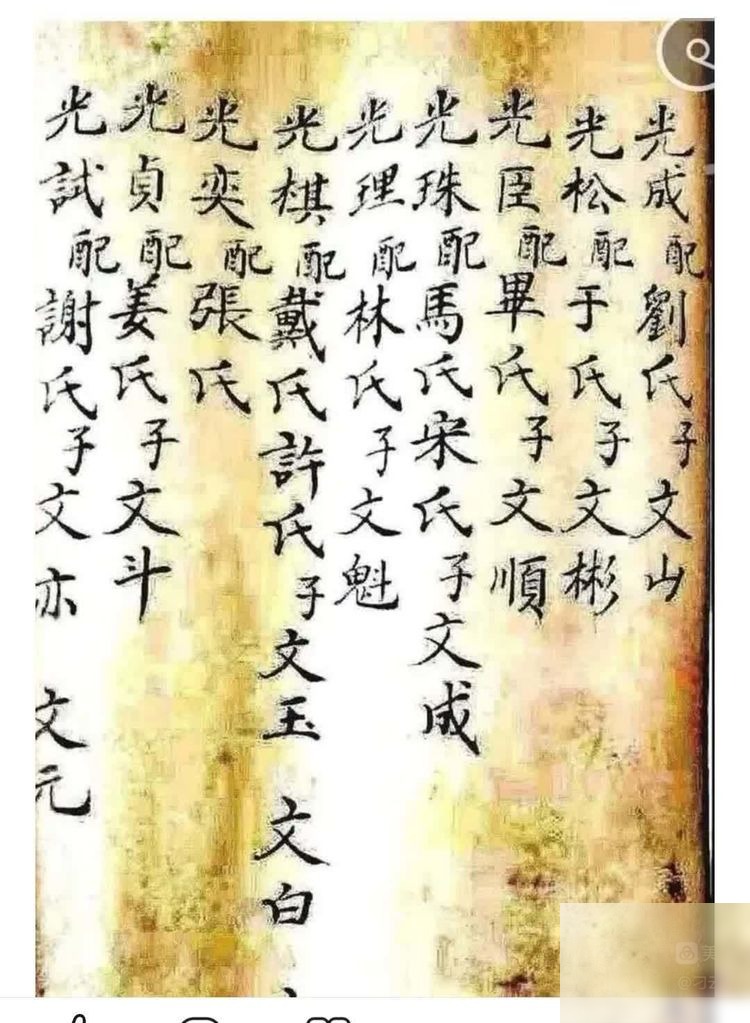 光成配劉氏子文山
光松配于氏子文彬
光臣配畢氏子文順
光珠配馬氏宋氏子文成
光理配林氏子文魁
光棋配戴氏許氏子文玉 文白
光奕配張氏
光貞配姜氏子文斗
光試配謝氏子文亦 文元